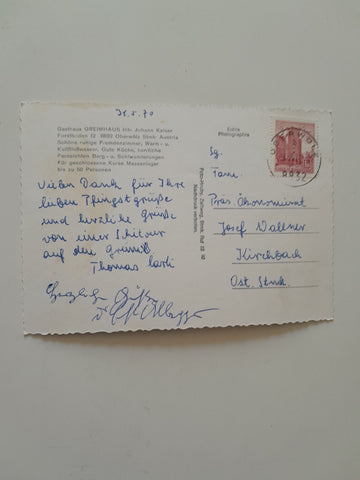 31.5.70
Gasthaus GREIMHAUS Inh. Johann Kaiser
Forstboden 12 8832 Oberwölz Stmk. Austria
Schöne ruhige Fremdenzimmer, Warm- u.
Kaltfließwasser, Gute Küche, herrliche
Fernsichten Berg- u. Schiwanderungen
Für geschlossene Kurse Massenlager
bis zu 50 Personen
Vielen Dank für Ihre
lieben Pfingstgrüße
und herzliche Grüße
von einer Schitour
auf den Greim
Thomas
Herzliche Grüße
Echte
Photographie
Foto-Hruby, Zeltweg, Stmk.
Nachdruck verboten.
OBERWÖLZ
8832
Sg.
Fam.
Präs Ökonomierat
Josef Wallner
Kirchbach
Ost. Stmk.